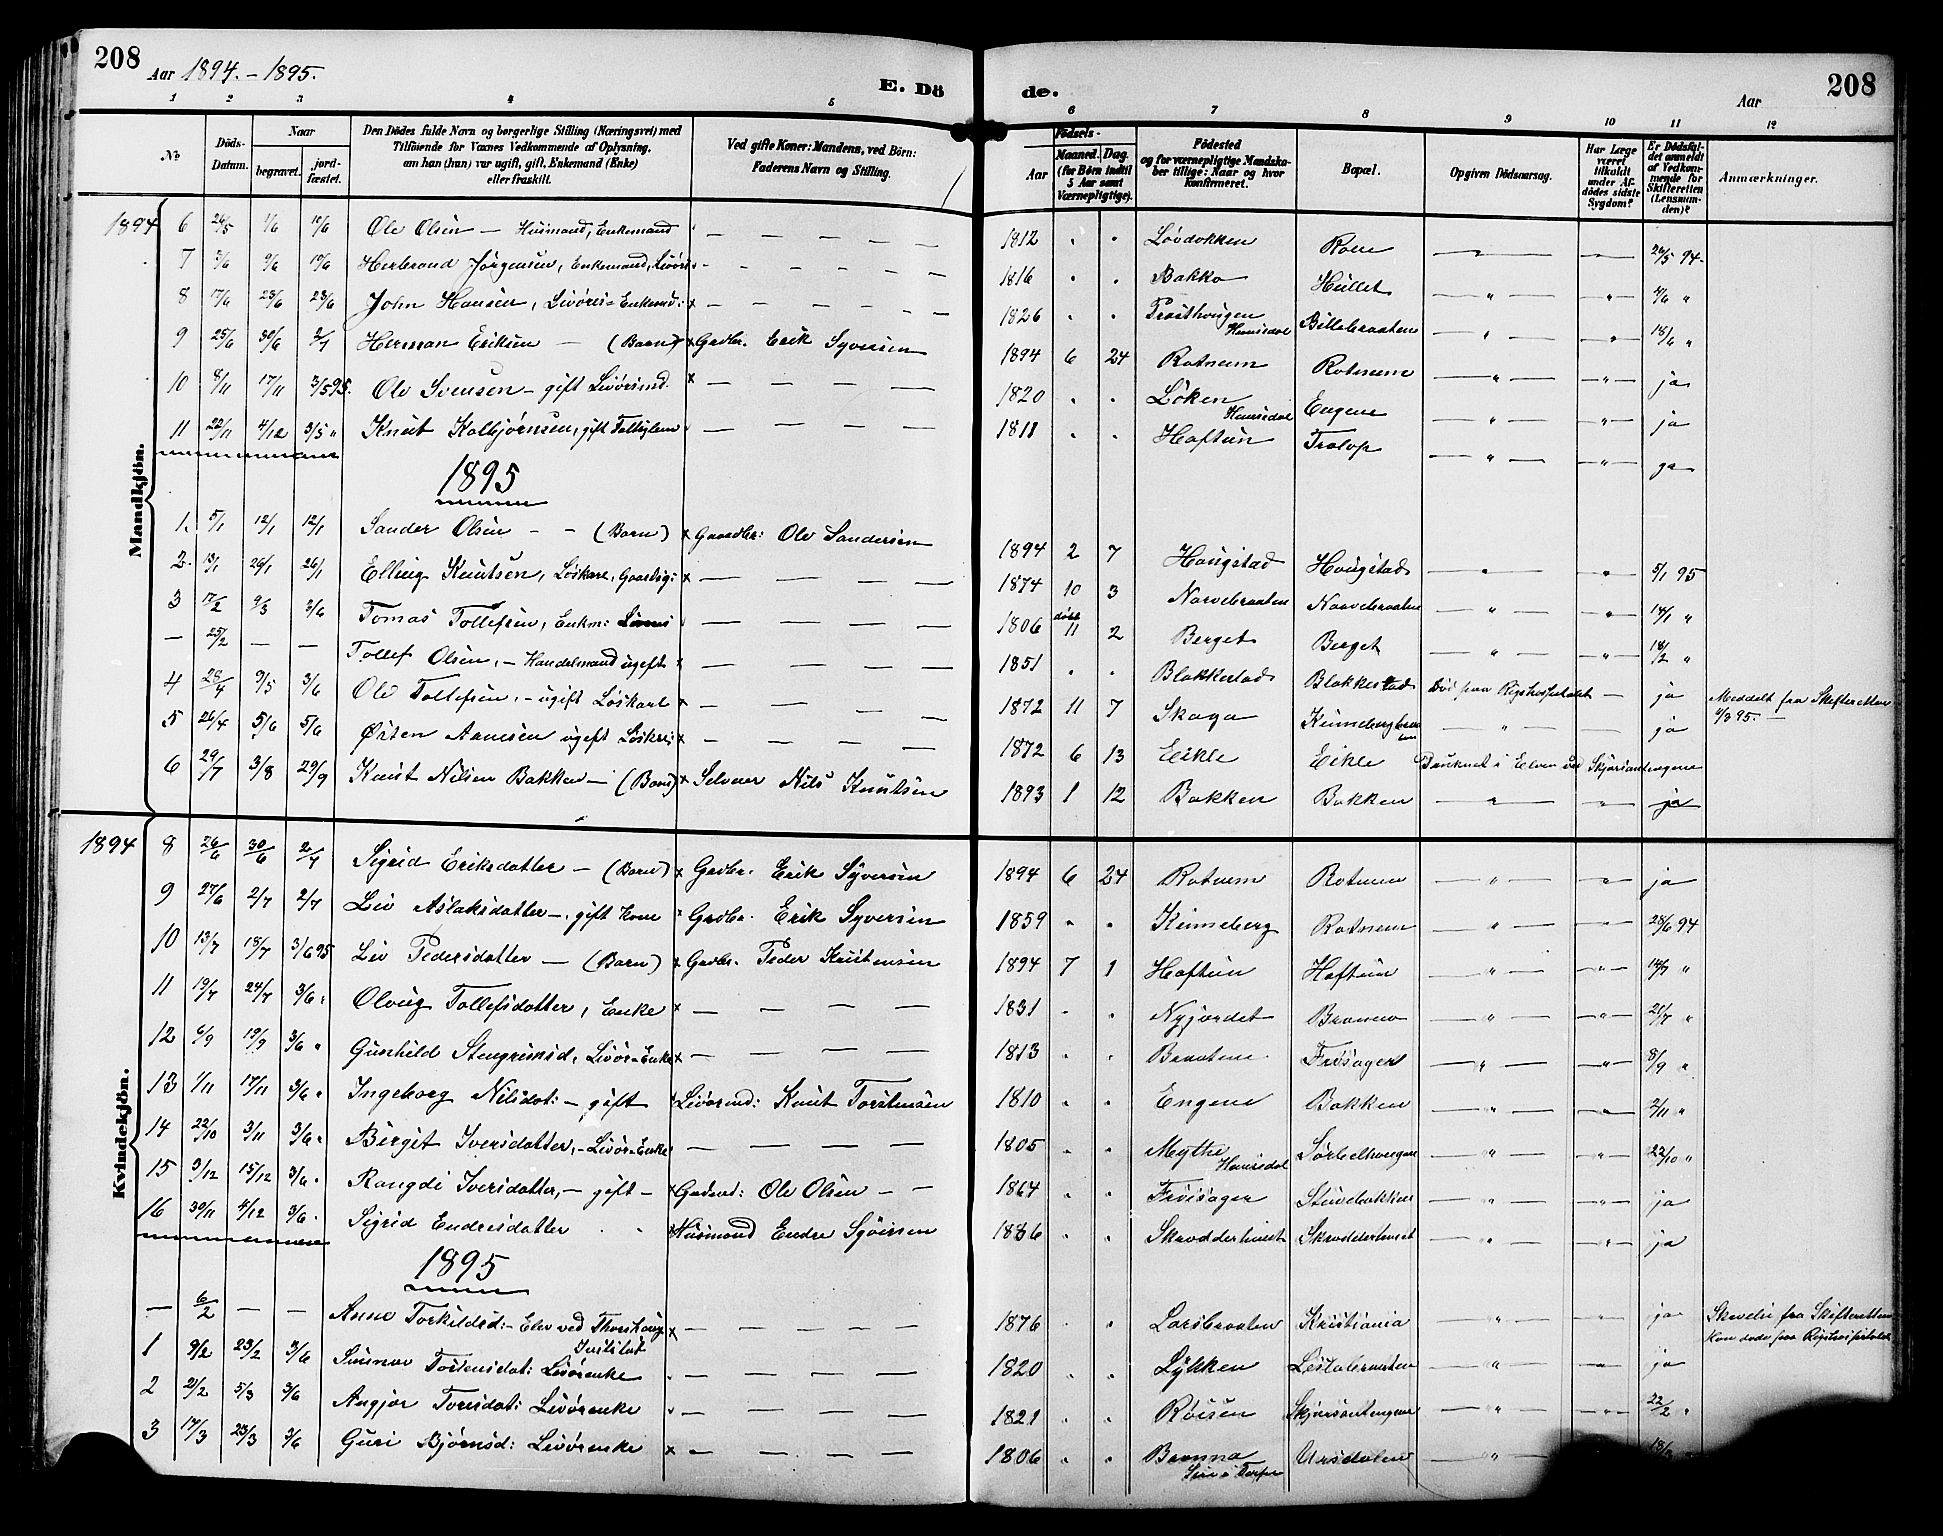 208
Aar 1894. - 1895.
E. Dö
de.
Aar
208
1 2 3 4 5
6 7 8 9 10 11 12
No.
Döds-Datum.
Naar
begravet.
jord-fæstet.
Den Dödes fulde Navn og borgerlige Stilling (Næringsvei) med
Tilföiende for Voxnes Vedkommende af Oplysning,
om han (hun) var ugift, gift, Enkemand (Enke)
eller fraskilt.
Ved gifte Koner: Mandens, ved Börn:
Faderens Navn og Stilling.
Födsels-
Aar
Maaned. Dag.
(for Börn indtil
5 Aar samt
Værnepligtige).
Födested
og for værnepligtige Mandska-
ber tillige: Naar og hvor
konfirmeret.
Bopæl.
Opgiven Dödsaarsag.
Har Læge
været
tilkaldt
under Af-
dödes sidste
Sygdom?
Er Dödsfal-
det anmeldt
af Vedkom-
mende for
Skifteretten
(Lensman-
den)?
Anmærkninger.
Mandkjön.
1894 6 24/5 1/6 10/6 Ole Olsen — Husmand, Enkemand — 1812 Løvdokken 24/5 94.
7 9/6 Herbrand Jørgensen, Enkemand, — 1816 Bakko Hullet 4/6 "
8 17/6 23/6 23/6 John Hansen, Livøres-Enkemd: — 1826 Hemsedal Billebraaten 18/6 "
9 25/6 30/6 2/7 Herman Eriksen — (Barn) Gaardbr. Erik Syversen 1894 6 24 Rotneim Rotneim ja
10 8/11 17/11 3/5 95. Ole Svensen — gift Livørsmd. — 1820 Løken Hemsedal Eugene ja
11 22/11 4/12 3/5 " Knut Kolbjørnsen, gift Fattiglem — 1811 Haftun Trolop ja
1895
1. 5/1 12/1 12/1 Sander Olsen — (Barn) Gaardbr: Ole Sandersen 1894 2 7 Haugstad Haugstad 5/1 95
2. 13/1 26/1 26/1 Elling Knutsen, Løskarl, — 1874 10 3 Narvebraaten Narvebraaten 14/1 "
3 17/2 9/3 3/6 Tomas Tollefsen, Enkm: — 1806 døbt 11 2 Berget Berget 18/2 "
— 25/2 — — Tollef Olsen, — Handelsmand ugift — 1851 Blakkestad Blakkestad Død paa Rigshospitalet — ja Meddelt fra Skifteretten
4/3 95. —
4 28/4 9/5 3/6 Ole Tollefsen, — ugift Løskarl — 1872 11 7 Skaga ja
5 26/4 5/6 5/6 Østen Aamesen ugift Løskarl — 1872 6 13 Eikle Eikle Druknet i Elven ved Skjørsantengene
6 29/7 3/8 29/9 Knut Nilsen Bakken — (Barn) Selveier Nils Knutsen 1893 1 12 Bakken Bakken ja
Kvindekjön.
1894 8 26/6 30/6 2/7 Sigrid Eriksdatter — (Barn) Gaardbr. Erik Syversen 1894 6 24 Rotneim Rotneim ja
9 27/6 2/7 2/7 Liv Aslaksdatter —, gift Kone Gaardbr. Erik Syversen 1859 Kinneberg Rotneim 28/6 94
10 13/7 18/7 3/6 95 Liv Pedersdatter — (Barn) Gaardbr. Peder Kristensen 1894 7 1 Haftun Haftun 14/7 "
11 19/7 24/7 3/6 " Olaug Tollefsdatter, Enke — 1831 Nyjordet Bromma 21/7 "
12 6/9 19/9 3/6 " Gunhild Stengrimsd, Livør-Enke — 1813 Braaten Frøisager 8/9 "
13 1/11 17/11 3/6 " Ingeborg Nilsdat: — gift Livørsmd: Knut Torstensen 1810 Engene Bakken 2/11 "
14 22/10 3/11 3/6 " Birgit Iversdatter, — Livør-Enke — 1805 Mythe Hemsedal Sørbelhougen 22/10 "
15 9/12 15/12 3/6 " Rangdi Iversdatter, — gift — Ole Olsen — 1864 Frøisager Stuvebakken ja
16 30/11 4/12 3/6 " Sigrid Endresdatter Husmand Endre Syversen 1886 Skrædderhuset Skrædderhuset ja
1895
— 6/2 — — Anne Torkildsd: — Elev ved Thorshaug
Institut — 1876 Larsbraaten Kristiania ja fra Skifteretten
døde paa Rigshospitalet
1 9/2 23/2 3/6 Sunnev Tostensdat: Livørenke — 1820 Lykken ja
2 21/2 5/3 3/6 Angjør Toresdat: Livørenke — 1821 Røisen Skjørsantengene 22/2 "
3 17/3 23/3 3/6 Guri Bjørnsd: Livørenke — 1806 Bromma Ursdalen 18/3